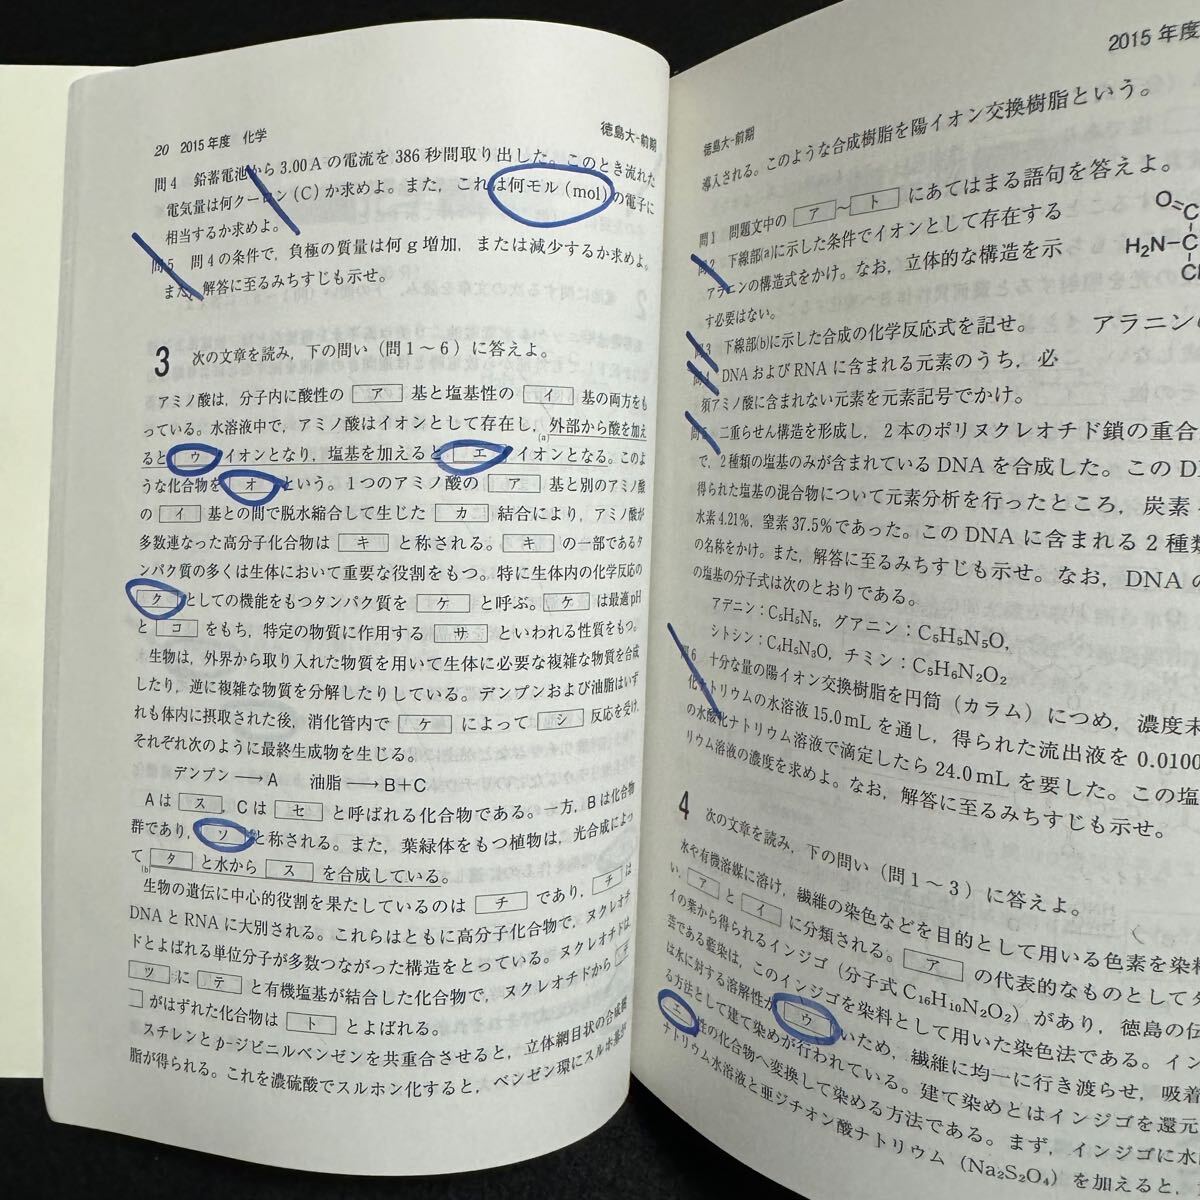 20 2015年度 化学
徳島大-前期
問4 鉛蓄電池から3.00Aの電流を386秒間取り出した。このとき流れた
電気量は何クーロン(C)か求めよ。また，これは何モル(mol)の電子に
相当するか求めよ。
問5 問4の条件で，負極の質量は何g増加，または減少するか求めよ。
また，解答に至るみちすじも示せ。
3 次の文章を読み，下の問い（問1～6）に答えよ。
アミノ酸は，分子内に酸性の ア 基と塩基性の イ 基の両方をも
っている。水溶液中で，アミノ酸はイオンとして存在し，外部から酸を加え
(a)
ると ウ イオンとなり，塩基を加えると エ イオンとなる。このよ
うな化合物を オ という。1つのアミノ酸の ア 基と別のアミノ酸
の イ 基との間で脱水縮合して生じた カ 結合により，アミノ酸が
多数連なった高分子化合物は キ と称される。 キ の一部であるタ
ンパク質の多くは生体において重要な役割をもつ。特に生体内の化学反応の
ク としての機能をもつタンパク質を ケ と呼ぶ。 ケ は最適pH
と コ をもち，特定の物質に作用する サ といわれる性質をもつ。
生物は，外界から取り入れた物質を用いて生体に必要な複雑な物質を合成
したり，逆に複雑な物質を分解したりしている。デンプンおよび油脂はいず
れも体内に摂取された後，消化管内で ケ によって シ 反応を受け，
それぞれ次のように最終生成物を生じる。
デンプン→A 油脂→B+C
Aは ス ，Cは セ と呼ばれる化合物である。一方，Bは化合物
群であり， ソ と称される。また，葉緑体をもつ植物は，光合成によっ
て タ と水から ス を合成している。
(b)
生物の遺伝に中心的役割を果たしているのは チ であり， チ は
DNAとRNAに大別される。これらはともに高分子化合物で，ヌクレオチ
ドとよばれる単位分子が多数つながった構造をとっている。ヌクレオチドは，
ツ に テ と有機塩基が結合した化合物で，ヌクレオチドから テ
がはずれた化合物は ト とよばれる。
スチレンとp-ジビニルベンゼンを共重合させると，立体網目状の合成樹
脂が得られる。これを濃硫酸でスルホン化すると，ベンゼン環にスルホ基が
2015年度
徳島大-前期
導入される。このような合成樹脂を陽イオン交換樹脂という。
問1 問題文中の ア ～ ト にあてはまる語句を答えよ。
問2 下線部(a)に示した条件でイオンとして存在する
アラニンの構造式をかけ。なお，立体的な構造を示
す必要はない。
O=C
H₂N-C
アラニンの
問3 下線部(b)に示した合成の化学反応式を記せ。
問4 DNAおよびRNAに含まれる元素のうち，必
須アミノ酸に含まれない元素を元素記号でかけ。
問5 二重らせん構造を形成し，2本のポリヌクレオチド鎖の重合
で，2種類の塩基のみが含まれているDNAを合成した。このD
得られた塩基の混合物について元素分析を行ったところ，炭素
水素4.21%，窒素37.5%であった。このDNAに含まれる2種類
の名称をかけ。また，解答に至るみちすじも示せ。なお，DNAの
の塩基の分子式は次のとおりである。
アデニン：C₅H₅N₅，グアニン：C₅H₅N₅O，
シトシン：C₄H₅N₃O，チミン：C₅H₆N₂O₂
問6 十分な量の陽イオン交換樹脂を円筒（カラム）につめ，濃度未
化ナトリウムの水溶液15.0mLを通し，得られた流出液を0.0100
の水酸化ナトリウム溶液で滴定したら24.0mLを要した。この塩
リウム溶液の濃度を求めよ。なお，解答に至るみちすじも示せ。
4 次の文章を読み，下の問い（問1～3）に答えよ。
水や有機溶媒に溶け，繊維の染色などを目的として用いる色素を染料
い， ア と イ に分類される。 ア の代表的なものとして
イの葉から得られるインジゴ（分子式C₁₆H₁₀N₂O₂）があり，徳島の伝
芸である藍染は，このインジゴを染料として用いた染色法である。イン
は水に対する溶解性が ウ いため，繊維に均一に行き渡らせ，吸着
る方法として建て染めが行われている。建て染めとはインジゴを還元
エ 性の化合物へ変換して染める方法である。まず，インジゴに水
ナトリウム水溶液と亜ジチオン酸ナトリウム（Na₂S₂O₄）を加えると，